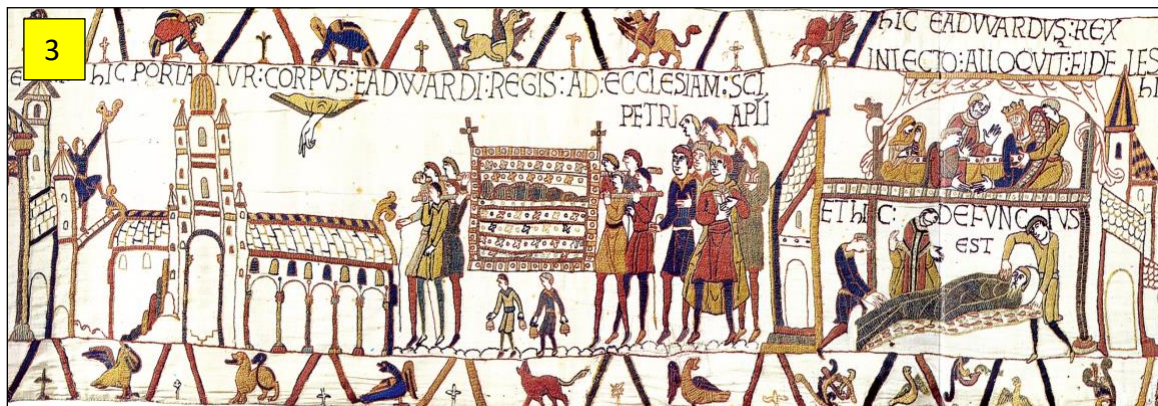 3
hIC PORTATVR: CORPVS: EADWARDI: REGIS: AD: ECCLESIAM: SCI
PETRI APLI
hIC EADWARDVS: REX
INLECTO: ALLOQVIT: FIDELES
hI
ET hIC: DEFVNCTVS
EST